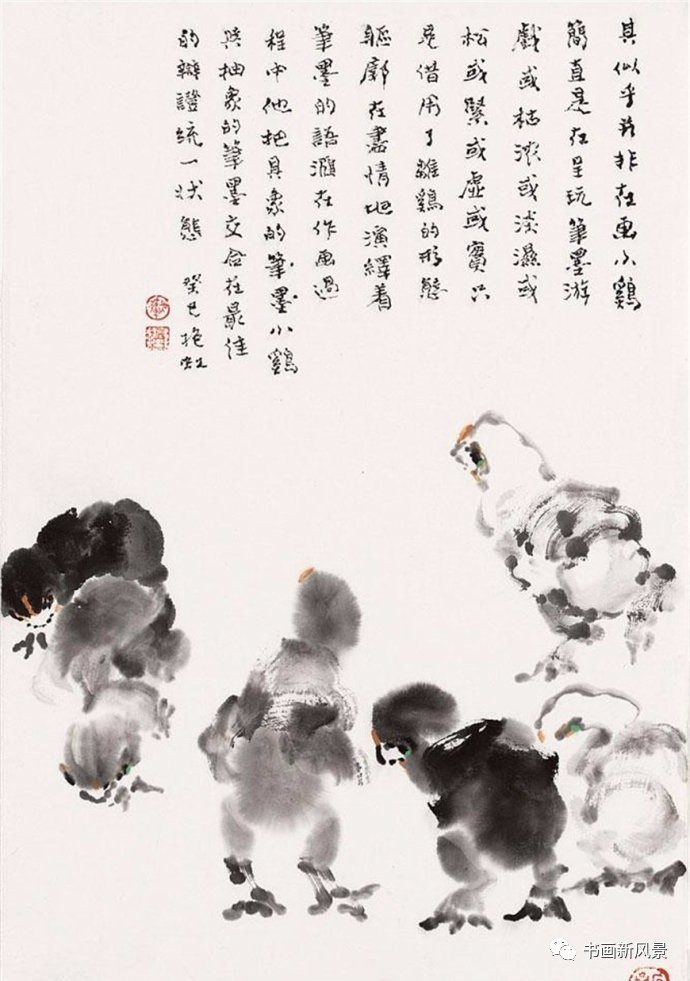 其似乎并非在画小鷄
簡直是在呈玩筆墨游
戲或枯濕或淡濕或
松或緊或虛或實只
是借用了雛鷄的形態
軀廓在盡情地演繹着
筆墨的語滙在作画過
程中他把具象的筆墨小鷄
與抽象的筆墨交合在最佳
的辯證統一狀態 癸巳 抱虹
书画新风景